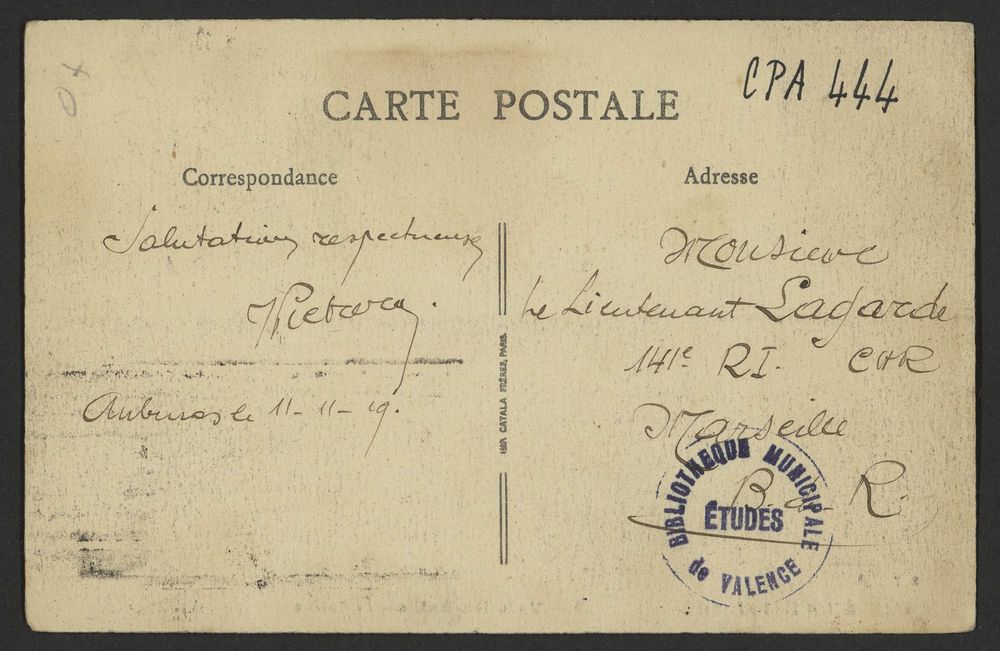 CPA 444
CARTE POSTALE
Correspondance
Adresse
Salutations respectueuses
11-11-19.
IMP. CATALA FRÈRES, PARIS.
Monsieur
Le Lieutenant Lagarde
141e RI. CHR
Marseille
B. d. R.
BIBLIOTHEQUE MUNICIPALE
ÉTUDES
de VALENCE